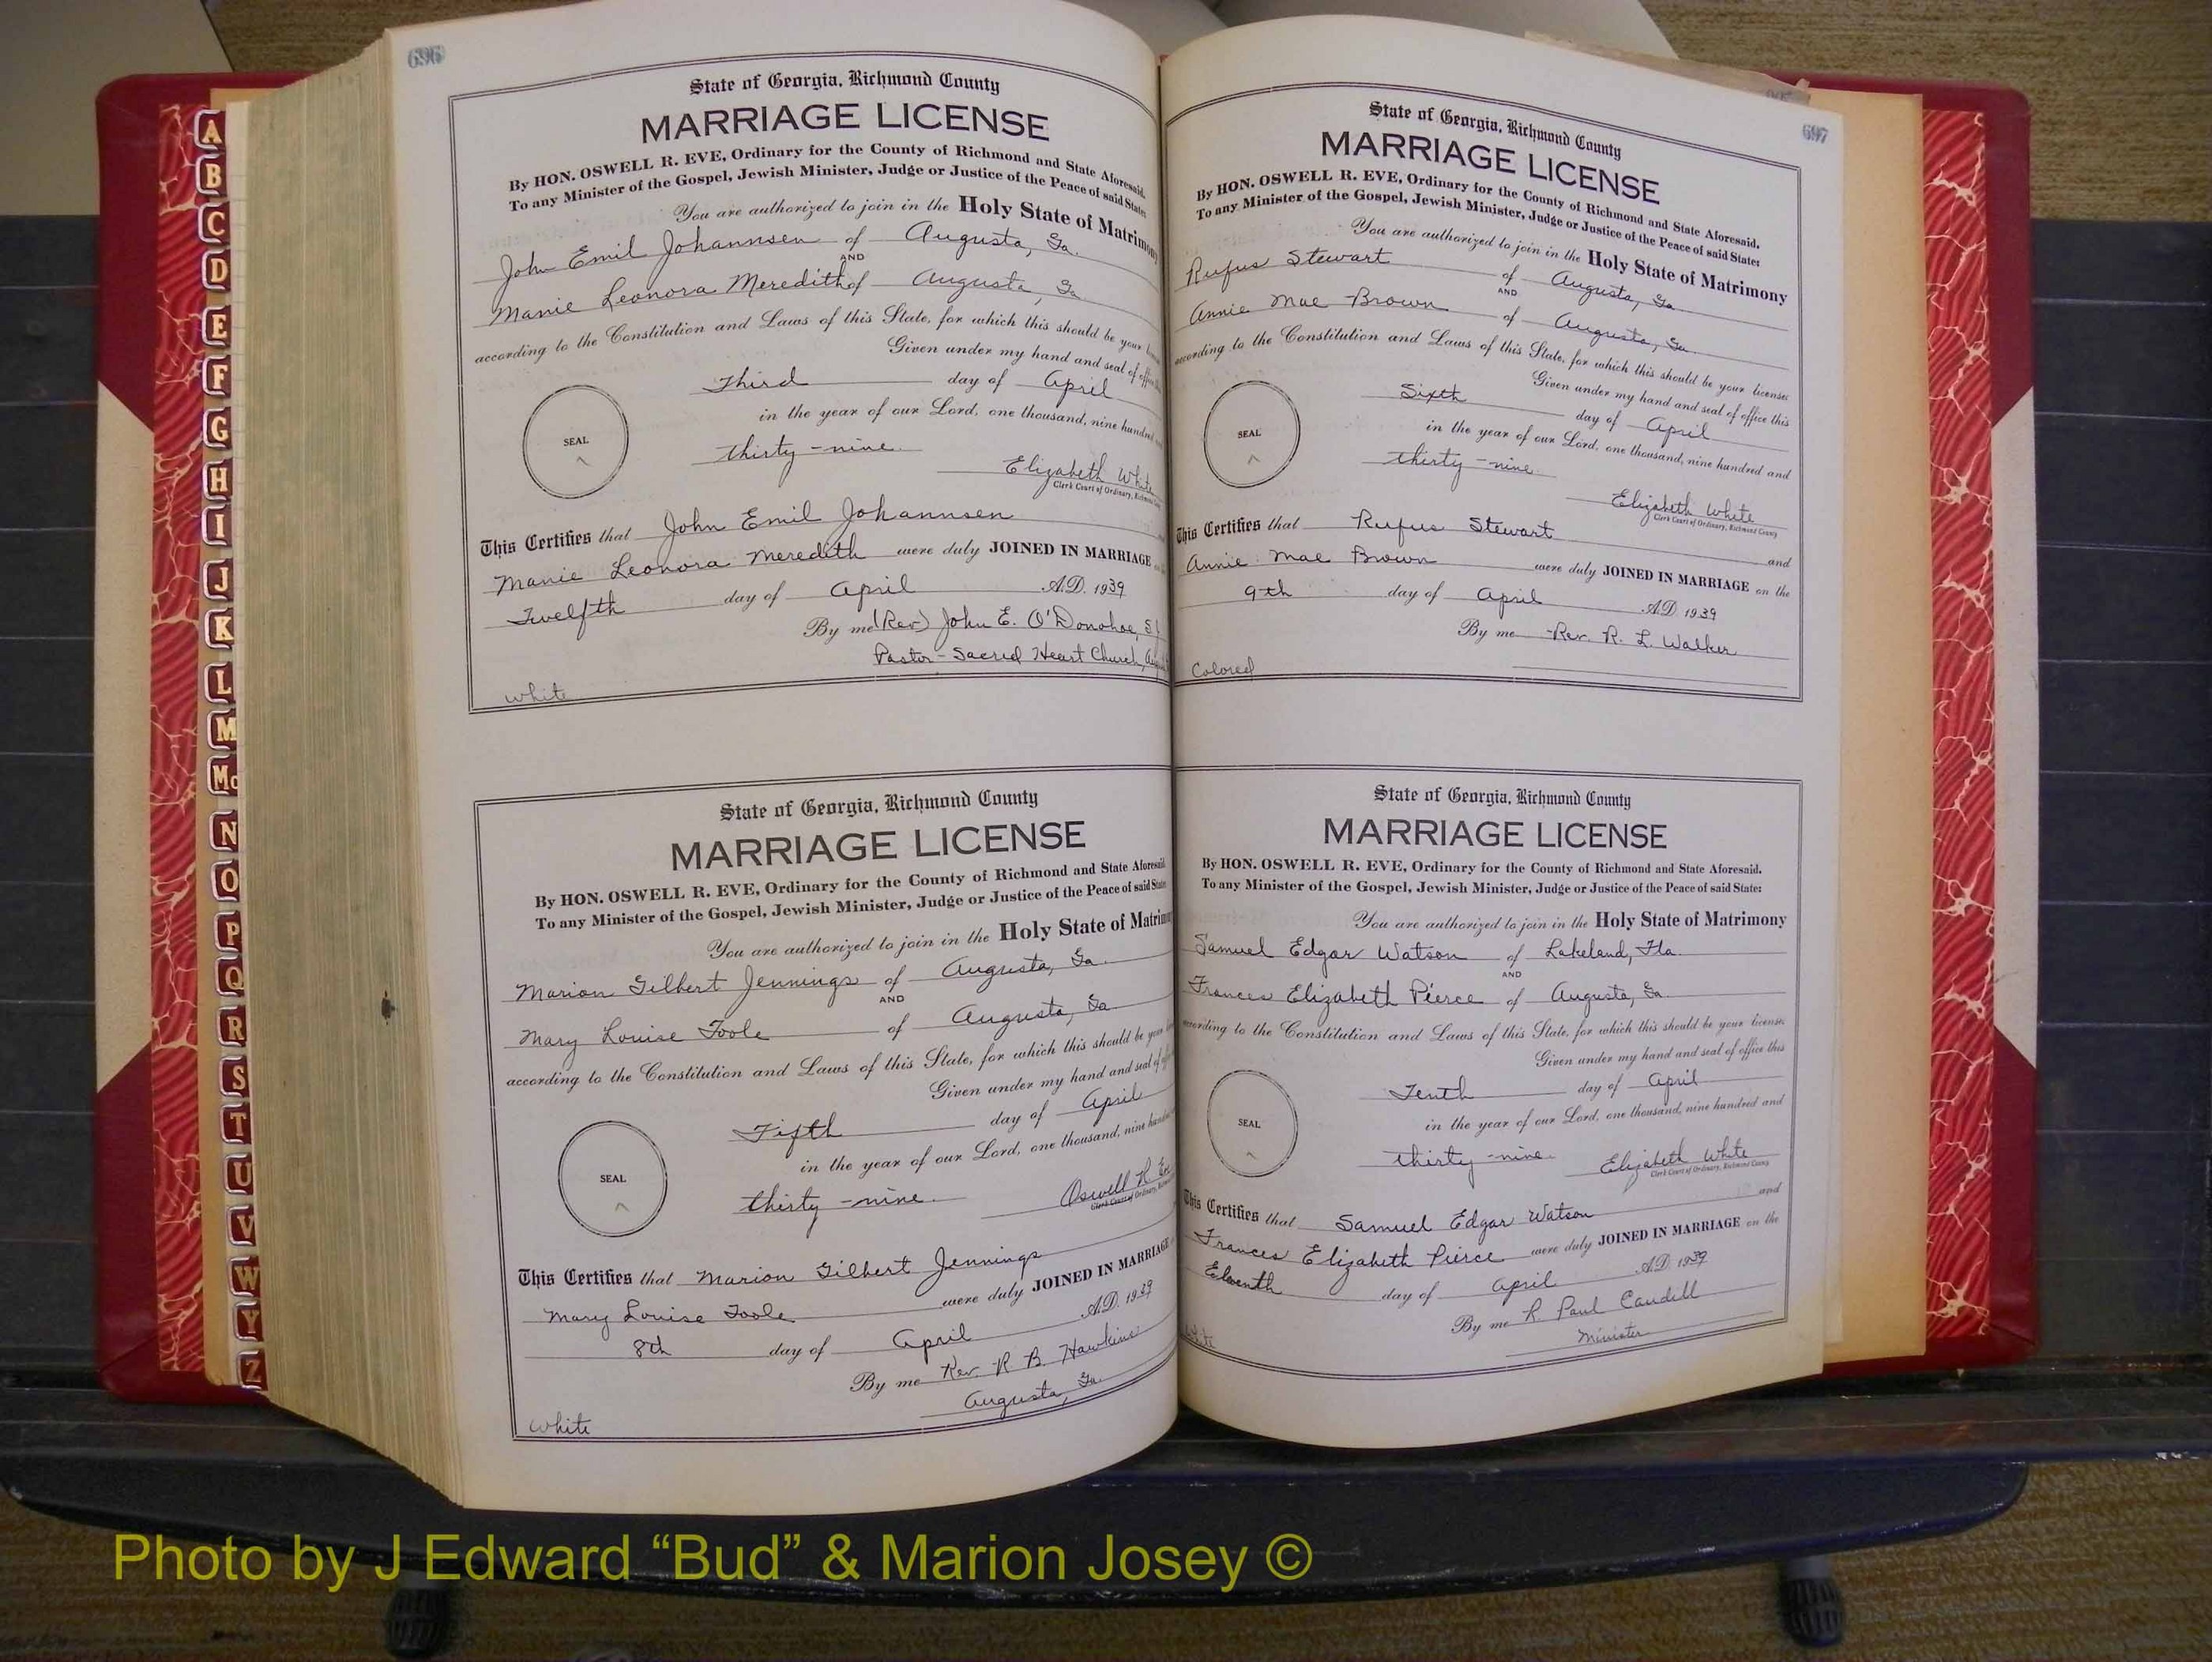 696
State of Georgia, Richmond County
MARRIAGE LICENSE
By HON. OSWELL R. EVE, Ordinary for the County of Richmond and State Aforesaid.
To any Minister of the Gospel, Jewish Minister, Judge or Justice of the Peace of said State:
You are authorized to join in the Holy State of Matrimony
John Emil Johannsen of Augusta, Ga.
AND
Manie Leonora Meredith of Augusta, Ga
according to the Constitution and Laws of this State, for which this should be your
Given under my hand and seal of office
Third day of April
in the year of our Lord, one thousand, nine hundred
thirty-nine
SEAL
Elizabeth White
Clerk Court of Ordinary, Richmond
This Certifies that John Emil Johannsen
Manie Leonora Meredith were duly JOINED IN MARRIAGE
Twelfth day of April A.D. 1939
By me (Rev) John E. O'Donohoe, SJ
Pastor - Sacred Heart Church,
White
State of Georgia, Richmond County
MARRIAGE LICENSE
By HON. OSWELL R. EVE, Ordinary for the County of Richmond and State Aforesaid
To any Minister of the Gospel, Jewish Minister, Judge or Justice of the Peace of said State
You are authorized to join in the Holy State of Matrimony
Marion Gilbert Jennings of Augusta, Ga.
AND
Mary Louise Toole of Augusta, Ga
according to the Constitution and Laws of this State, for which this should be your
Given under my hand and seal of
Fifth day of April
in the year of our Lord, one thousand, nine hundred
thirty-nine.
SEAL
Oswell R. Eve
Clerk Court of Ordinary,
This Certifies that Marion Gilbert Jennings
Mary Louise Toole were duly JOINED IN MARRIAGE
8th day of April A.D. 1939
By me Rev. R. B. Hawkins
Augusta, Ga.
White
697
State of Georgia, Richmond County
MARRIAGE LICENSE
By HON. OSWELL R. EVE, Ordinary for the County of Richmond and State Aforesaid.
To any Minister of the Gospel, Jewish Minister, Judge or Justice of the Peace of said State:
You are authorized to join in the Holy State of Matrimony
Rufus Stewart of Augusta, Ga
AND
Annie Mae Brown of Augusta, Ga.
according to the Constitution and Laws of this State, for which this should be your license
Given under my hand and seal of office this
Sixth day of April
in the year of our Lord, one thousand, nine hundred and
thirty-nine
SEAL
Elizabeth White
Clerk Court of Ordinary, Richmond County
This Certifies that Rufus Stewart and
Annie Mae Brown were duly JOINED IN MARRIAGE on the
9th day of April A.D. 1939
By me Rev. R. L. Walker
Colored
State of Georgia, Richmond County
MARRIAGE LICENSE
By HON. OSWELL R. EVE, Ordinary for the County of Richmond and State Aforesaid.
To any Minister of the Gospel, Jewish Minister, Judge or Justice of the Peace of said State:
You are authorized to join in the Holy State of Matrimony
Samuel Edgar Watson of Lakeland, Fla.
AND
Frances Elizabeth Pierce of Augusta, Ga.
according to the Constitution and Laws of this State, for which this should be your license
Given under my hand and seal of office this
Tenth day of April
in the year of our Lord, one thousand, nine hundred and
thirty-nine.
SEAL
Elizabeth White
Clerk Court of Ordinary, Richmond County
This Certifies that Samuel Edgar Watson and
Frances Elizabeth Pierce were duly JOINED IN MARRIAGE on the
Eleventh day of April A.D. 1939
By me R. Paul Caudill
Minister
White
A
B
C
D
E
F
G
H
I
J
K
L
M
Mc
N
O
P
Q
R
S
T
U
V
W
Y
Z
Photo by J Edward “Bud” & Marion Josey ©